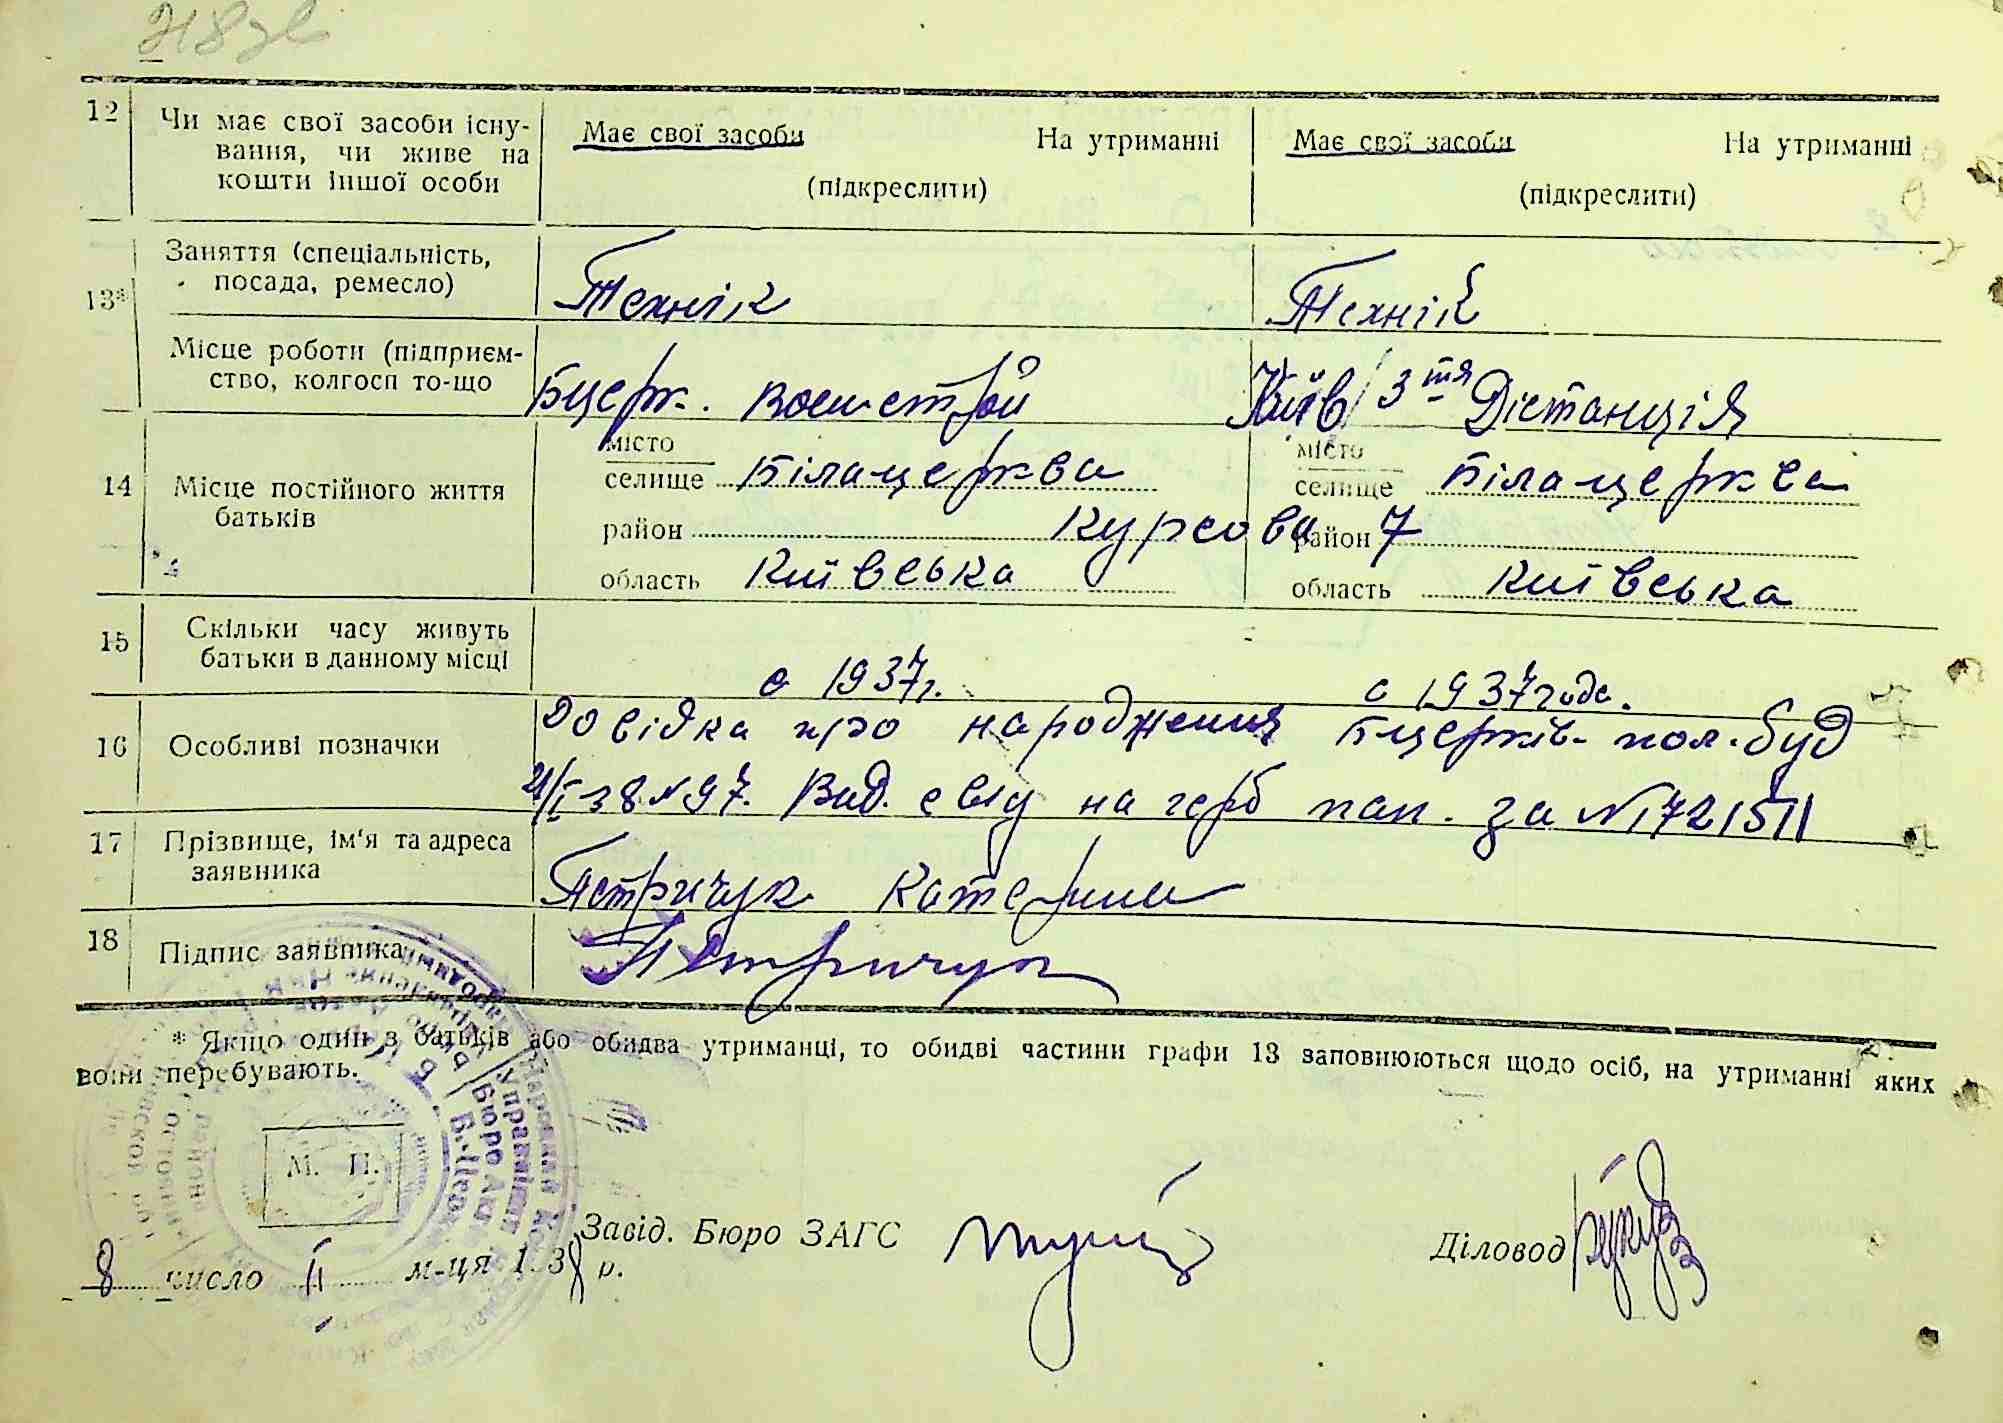 12 Чи має свої засоби існу-
вання, чи живе на
кошти іншої особи
Має свої засоби На утриманні
(підкреслити)
Має свої засоби На утриманні
(підкреслити)
13*
Заняття (спеціальність,
посада, ремесло)
Технік
Технік
Місце роботи (підприєм-
ство, колгосп то-що
Бцерк. Воєнстрой
Київ 3тя Дістанція
14 Місце постійного життя
батьків
місто
селище Білацерква
район Курсова 7
область Київська
місто
селище Білацерква
район
область Київська
15 Скільки часу живуть
батьки в данному місці
с 1937г.
с 1937 года.
16 Особливі позначки
Довідка про народження Бцерків. пол. буд
21/I 38 № 97. Вид. свід на герб пап. за № 1721511
17 Прізвище, ім'я та адреса
заявника
Петричук Катерина
18 Підпис заявника
Петричук
* Якщо один з батьків або обидва утриманці, то обидві частини графи 13 заповнюються щодо осіб, на утриманні яких
вони перебувають.
М. П.
Завід. Бюро ЗАГС
Діловод
8 число II м-ця 1938 р.